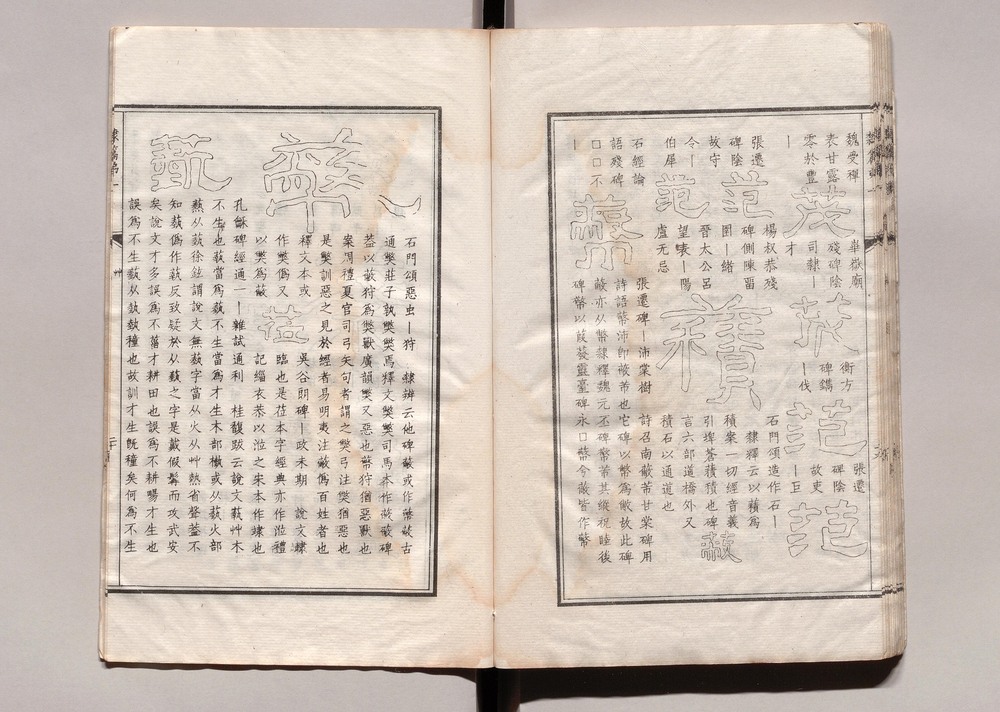 魏受禪
表甘露
零於豐
丨
茂
華嶽廟
殘碑陰
司隸丨
才
茷
衡方
碑鐫
丨伐
范
張遷
碑陰
故吏
丨巨
范
張遷
碑陰
故守
令丨
伯犀
范
楊叔恭殘
碑側陳畱
圉丨緒
范
晉太公呂
望表丨陽
盧无忌
積
石門頌造作石丨
隸釋云以積為
積案一切經音義
引埤蒼積也碑
言六部道橋外又
積石以通道也
蔽
石經論
語殘碑
口口不
丨
張遷碑丨沛棠樹 詩召南蔽芾甘棠碑用
詩語幣沛卽蔽芾也它碑以幣為敝故此碑
蔽亦从幣隸釋魏元丕碑幣芾其縱祝睦後
碑幣以葭薆靈臺碑永口幣今蔽皆作幣
石門頌惡虫丨狩 隸辨云他碑蔽或作幣蔽古
通獘莊子孰獘獘焉釋文獘獘司馬本作蔽蔽碑
葢以蔽狩為獘獸廣韻獘又惡也幣狩猶惡獸也
案周禮夏官司弓矢句者謂之獘弓注獘猶惡也
是獘訓惡之見於經者易明夷注蔽偽百姓者也
釋文本或
作獘偽又
以獘為蔽
莅
吳谷朗碑丨政未期 說文
臨也是莅本字經典亦作涖禮
記緇衣恭以涖之宋本作也
蓺
孔龢碑經通一丨雜試通利 桂馥跋云說文蓺艸木
不生也蓺當為蓺不生當為才生木部樕或从蓺火部
爇从蓺徐鉉謂說文無蓺字當从火从艸熱省聲葢不
知蓺偽作蓺反致疑於从蓺之字是戴假髯而攻武安
矣說文才多誤為不菑才耕田也誤為不耕暘才生也
誤為不生蓺从埶埶種也故訓才生旣種矣何為不生